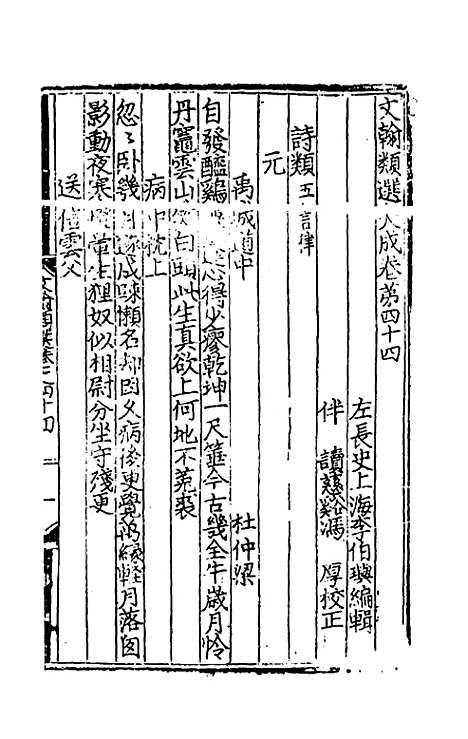 文翰類選大成卷第四十四
左長史上海李伯璵編輯
伴讀慈谿馮厚校正
詩類五言律
元
禹城道中 杜仲梁
自發醯雞得少寥乾坤一尺箠今古幾全牛歲月怜
丹竈雲山白頭此生真欲上何地不菟裘
病中枕上
忽〻卧幾成疎懶名却因久病後更覺爲緣輕月落囱
影動夜寒童生狸奴似相尉分坐守殘更
送信雲父